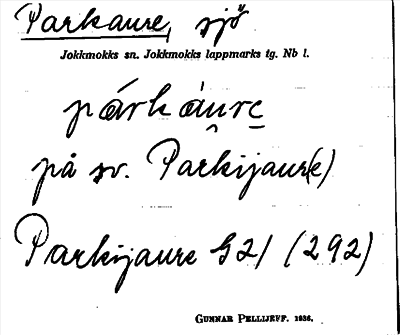 Parkaure, sjö
Jokkmokks sn. Jokkmokks lappmarks tg. Nb l.
párkáu̯re̲
på sv. Parkijaur(e)
Parkijaure G21 (292)
GUNNAR PELLIJEFF. 1936.